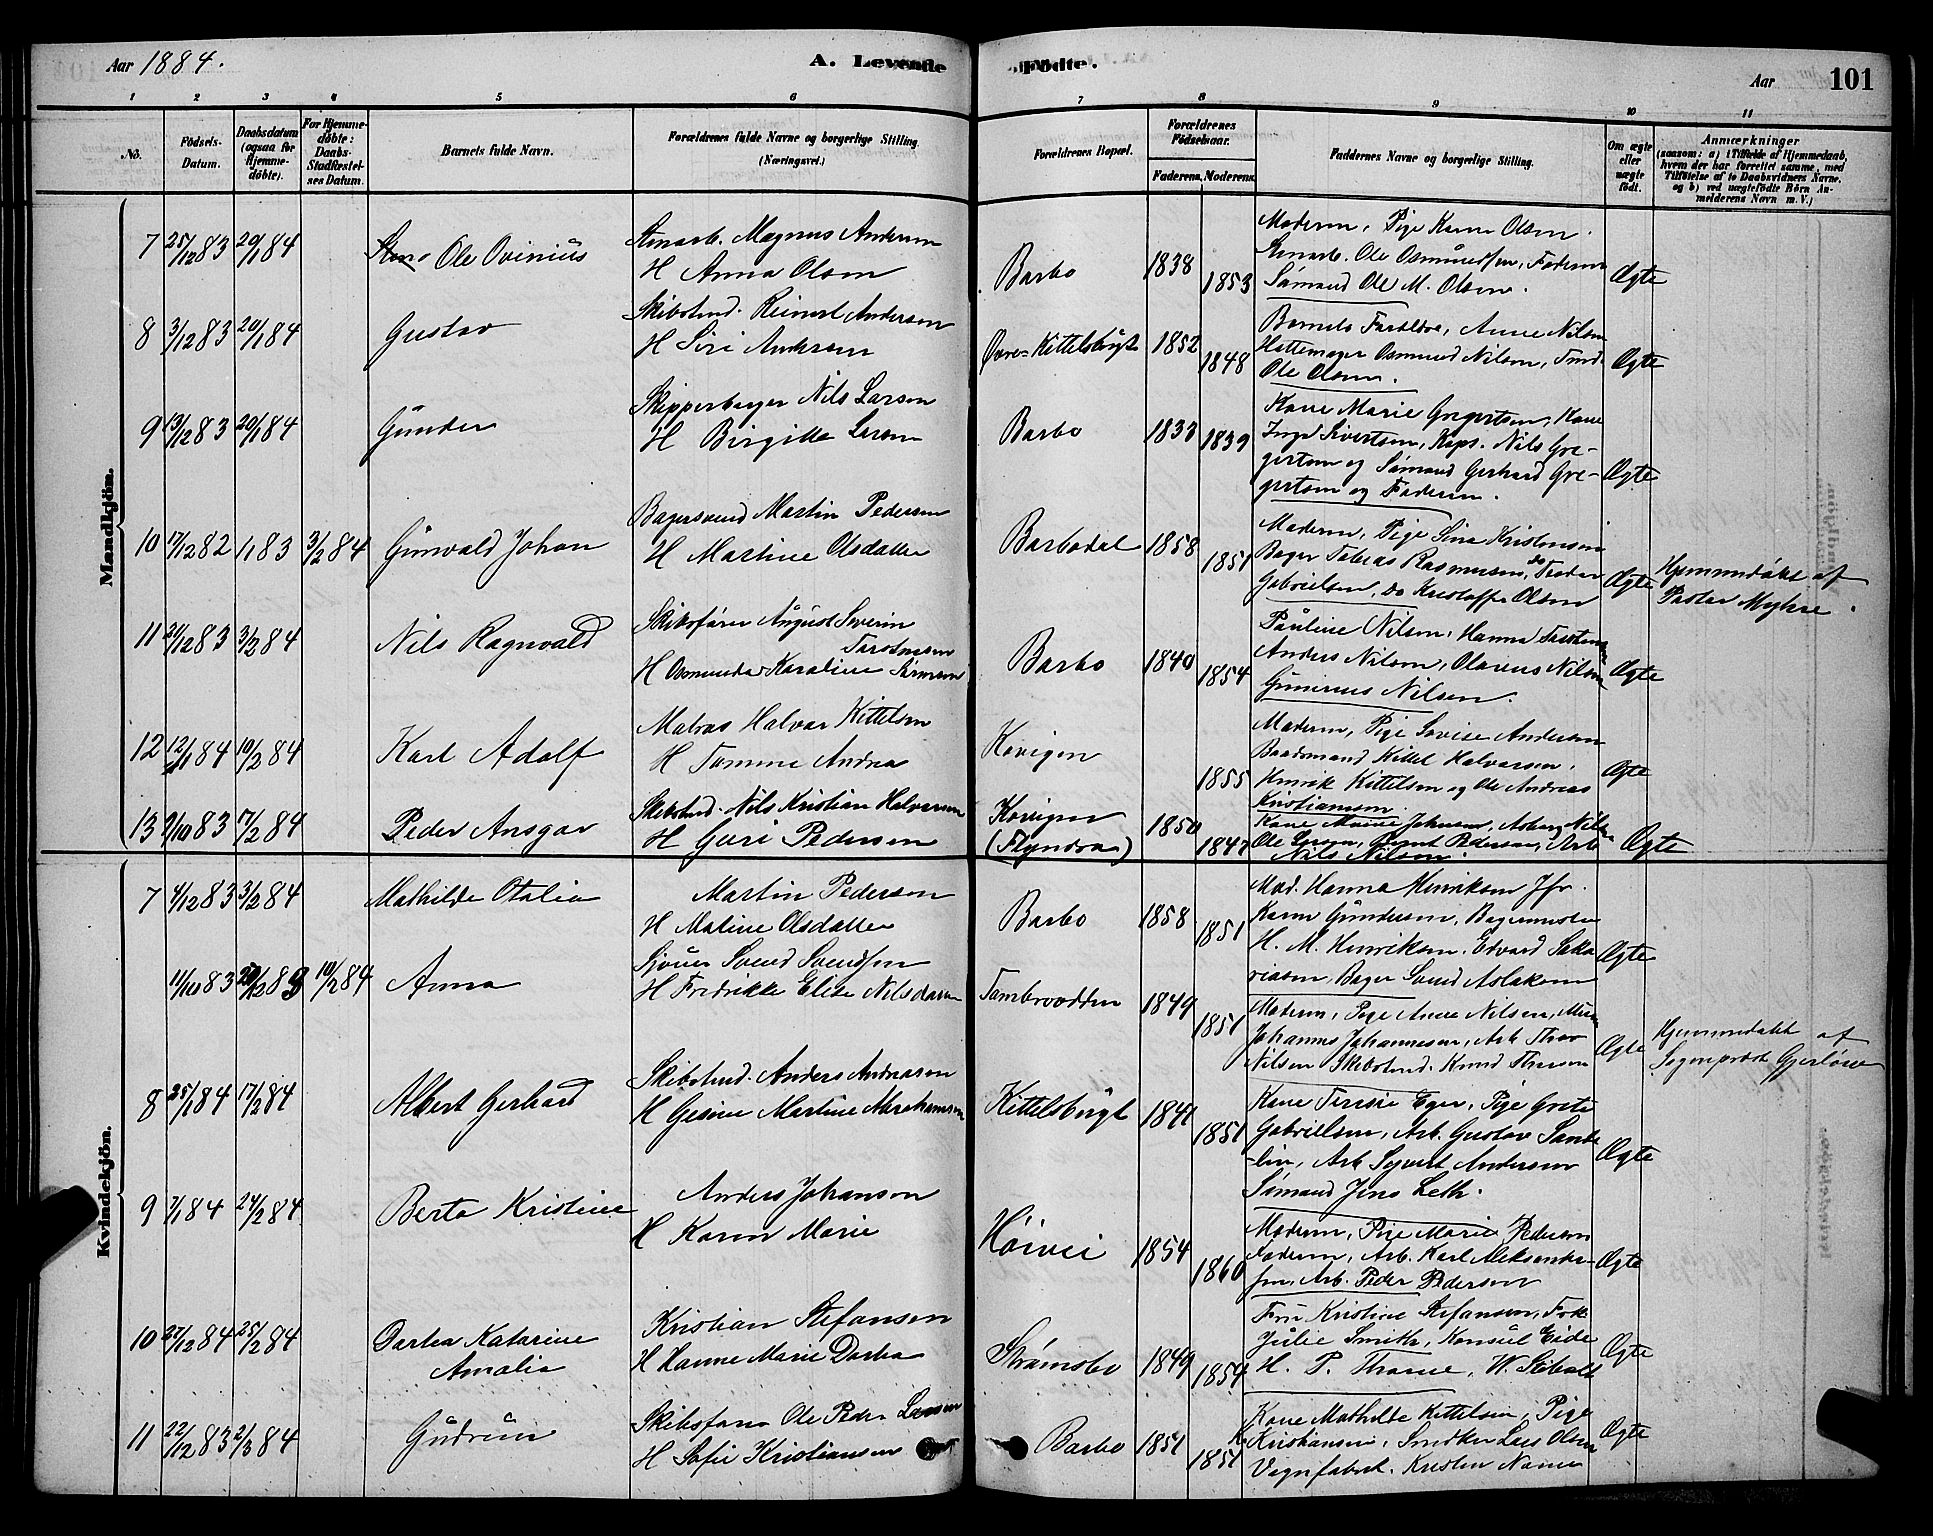 Aar 1884.
A. Levende Fødte.
Aar 101
1 2 3 4 5 6 7 8 9 10 11
No.
Fødsels-Datum.
Daabsdatum (ogsaa for Hjemme-døbte).
For Hjemme-døbte: Daabs-Stadfæstel-ses Datum.
Barnets fulde Navn.
Forældrenes fulde Navne og borgerlige Stilling. (Næringsvei.)
Forældrenes Bopæl.
Forældrenes Fødselsaar.
Faderens. Moderens.
Faddernes Navne og borgerlige Stilling.
Om ægte eller uægte født.
Anmærkninger
(saasom: a) i Tilfælde af Hjemmedaab, hvem der har forrettet samme, med Tilføielse af to Daabsvidners Navne, og b) ved uægtefødte Børn An-melderens Navn m. V.)
Mandkjøn.
7 25/12 83 20/1 84 Ole Ovinius
Magnus Andersen
H Anna Olsen
Barbo 1838 1853
Moderen, Pige Karen Olsen
Ole Osmundsen, Faderen
Sømand Ole M. Olsen.
Ægte
8 3/12 83 20/1 84 Gustav
Skibstmd. Reinert Andersen
H Siri Andersen
Øvre-Kittelsbugt 1852 1848
Barnets Forældre, Anne Nilsen
Hattemager Osmund Nilsen, Tmd.
Ole Olsen.
Ægte
9 13/12 83 20/1 84 Gunder
Skipperborger Nils Larsen
H Birgitte Larsen
Barbo 1833 1839
Kone Marie Gregertsen, Kone
Inge Sivertsen, Kapt. Nils Gre-
gertsen og Sømand Gerhard Gre-
gertsen og Faderen.
Ægte
10 17/12 82 1/1 83 3/2 84 Gunvald Johan
Bagersvend Martin Pedersen
H Martine Olsdatter
Barbodal 1858 1851
Moderen, Pige Sina Kristensen
Bager Tobias Rasmussen, do Teodor
Gabrielsen, do Kristoffer Olsen
Ægte
Hjemmedøbt af
Pastor Myhre.
11 21/12 83 3/2 84 Nils Ragnvald
Skibsfører August Severin
Torstensen
H Osmunda Karoline Sørensen
Barbo 1840 1854
Pauline Nilsen, Hanna Torstensen
Anders Nilsen, Olavus Nilsen
Gunerius Nilsen.
Ægte
12 12/1 84 10/2 84 Karl Adolf
Matros Halvor Kittelsen
H Tomine Andrea
Kovigen 1855
Moderen, Pige Lovise Andersen
Baadsmand Kittel Halvorsen,
Henrik Kittelsen og Ole Andreas
Kristiansen.
Ægte
13 9/10 83 17/2 84 Peder Ansgar
Skibstmd. Nils Kristian Halvorsen
H Guri Pedersen
Kovigen
(Flyndra) 1850 1847
Kone Marie Johnsen, Asborg Nilsen
Ole Larsen, Pedersen, Arb.
Nils Nilsen.
Ægte
Kvindekjøn.
7 4/12 83 3/2 84 Mathilde Otalia
Martin Pedersen
H Matine Olsdatter
Barbo 1858 1851
Mad. Hanna Henriksen Jfr.
Karen Gundersen, Bagermester
H. M. Henriksen, Edvard Saka-
riasen, Bager Svend Aslaksen
Ægte
11/10 83 12 83 10/2 84 Anna
Sjouer Svend Svendsen
H Fredrikke Elise Nilsdatter
Tambrvodden 1849 1851
Moderen, Pige Anne Nilsen,
Johannes Johannesen, Arb. Thor
Nilsen Skibstmd. Knud Thorsen
Ægte
Hjemmedøbt af
Sogneprest Gjerløw
8 25/1 84 17/2 84 Albert Gerhard
Skibstmd. Anders Andreasen
H Gesine Martine Abrahamsen
Kittelsbugt 1841 1851
Kone Teresie Eger, Pige Grete
Gabrielsen, Arb. Gustav Sand-
lin, Arb. Syvert Andersen
Sømand Jens Leth.
Ægte
9 7/1 84 24/2 84 Berta Kristine
Anders Johansen
H Karen Marie
Høivei 1854 1860
Moderen, Pige Marie Pedersen
Faderen, Arb. Karl Aleksander-
sen, Arb. Peder Pedersen
Ægte
10 27/12 84 25/2 84 Dortea Katarine
Amalia
Kristian Stefansen
H Hanne Marie Dortea
Strømsbo 1849 1854
Fru Kristine Stefansen, Frk.
Julie Smith, Konsul Eide
H. P. Thorne, W. Sibold
Ægte
11 22/12 83 2/3 84 Gudrun
Skibsfører Ole Peder Larsen
H Sofie Kristiansen
Barbo 1851 1851
Kone Mathilde Kittelsen, Pige
K. Kristiansen, Snedker Lars Olsen
Vognfabrk. Kristen Narne
Ægte